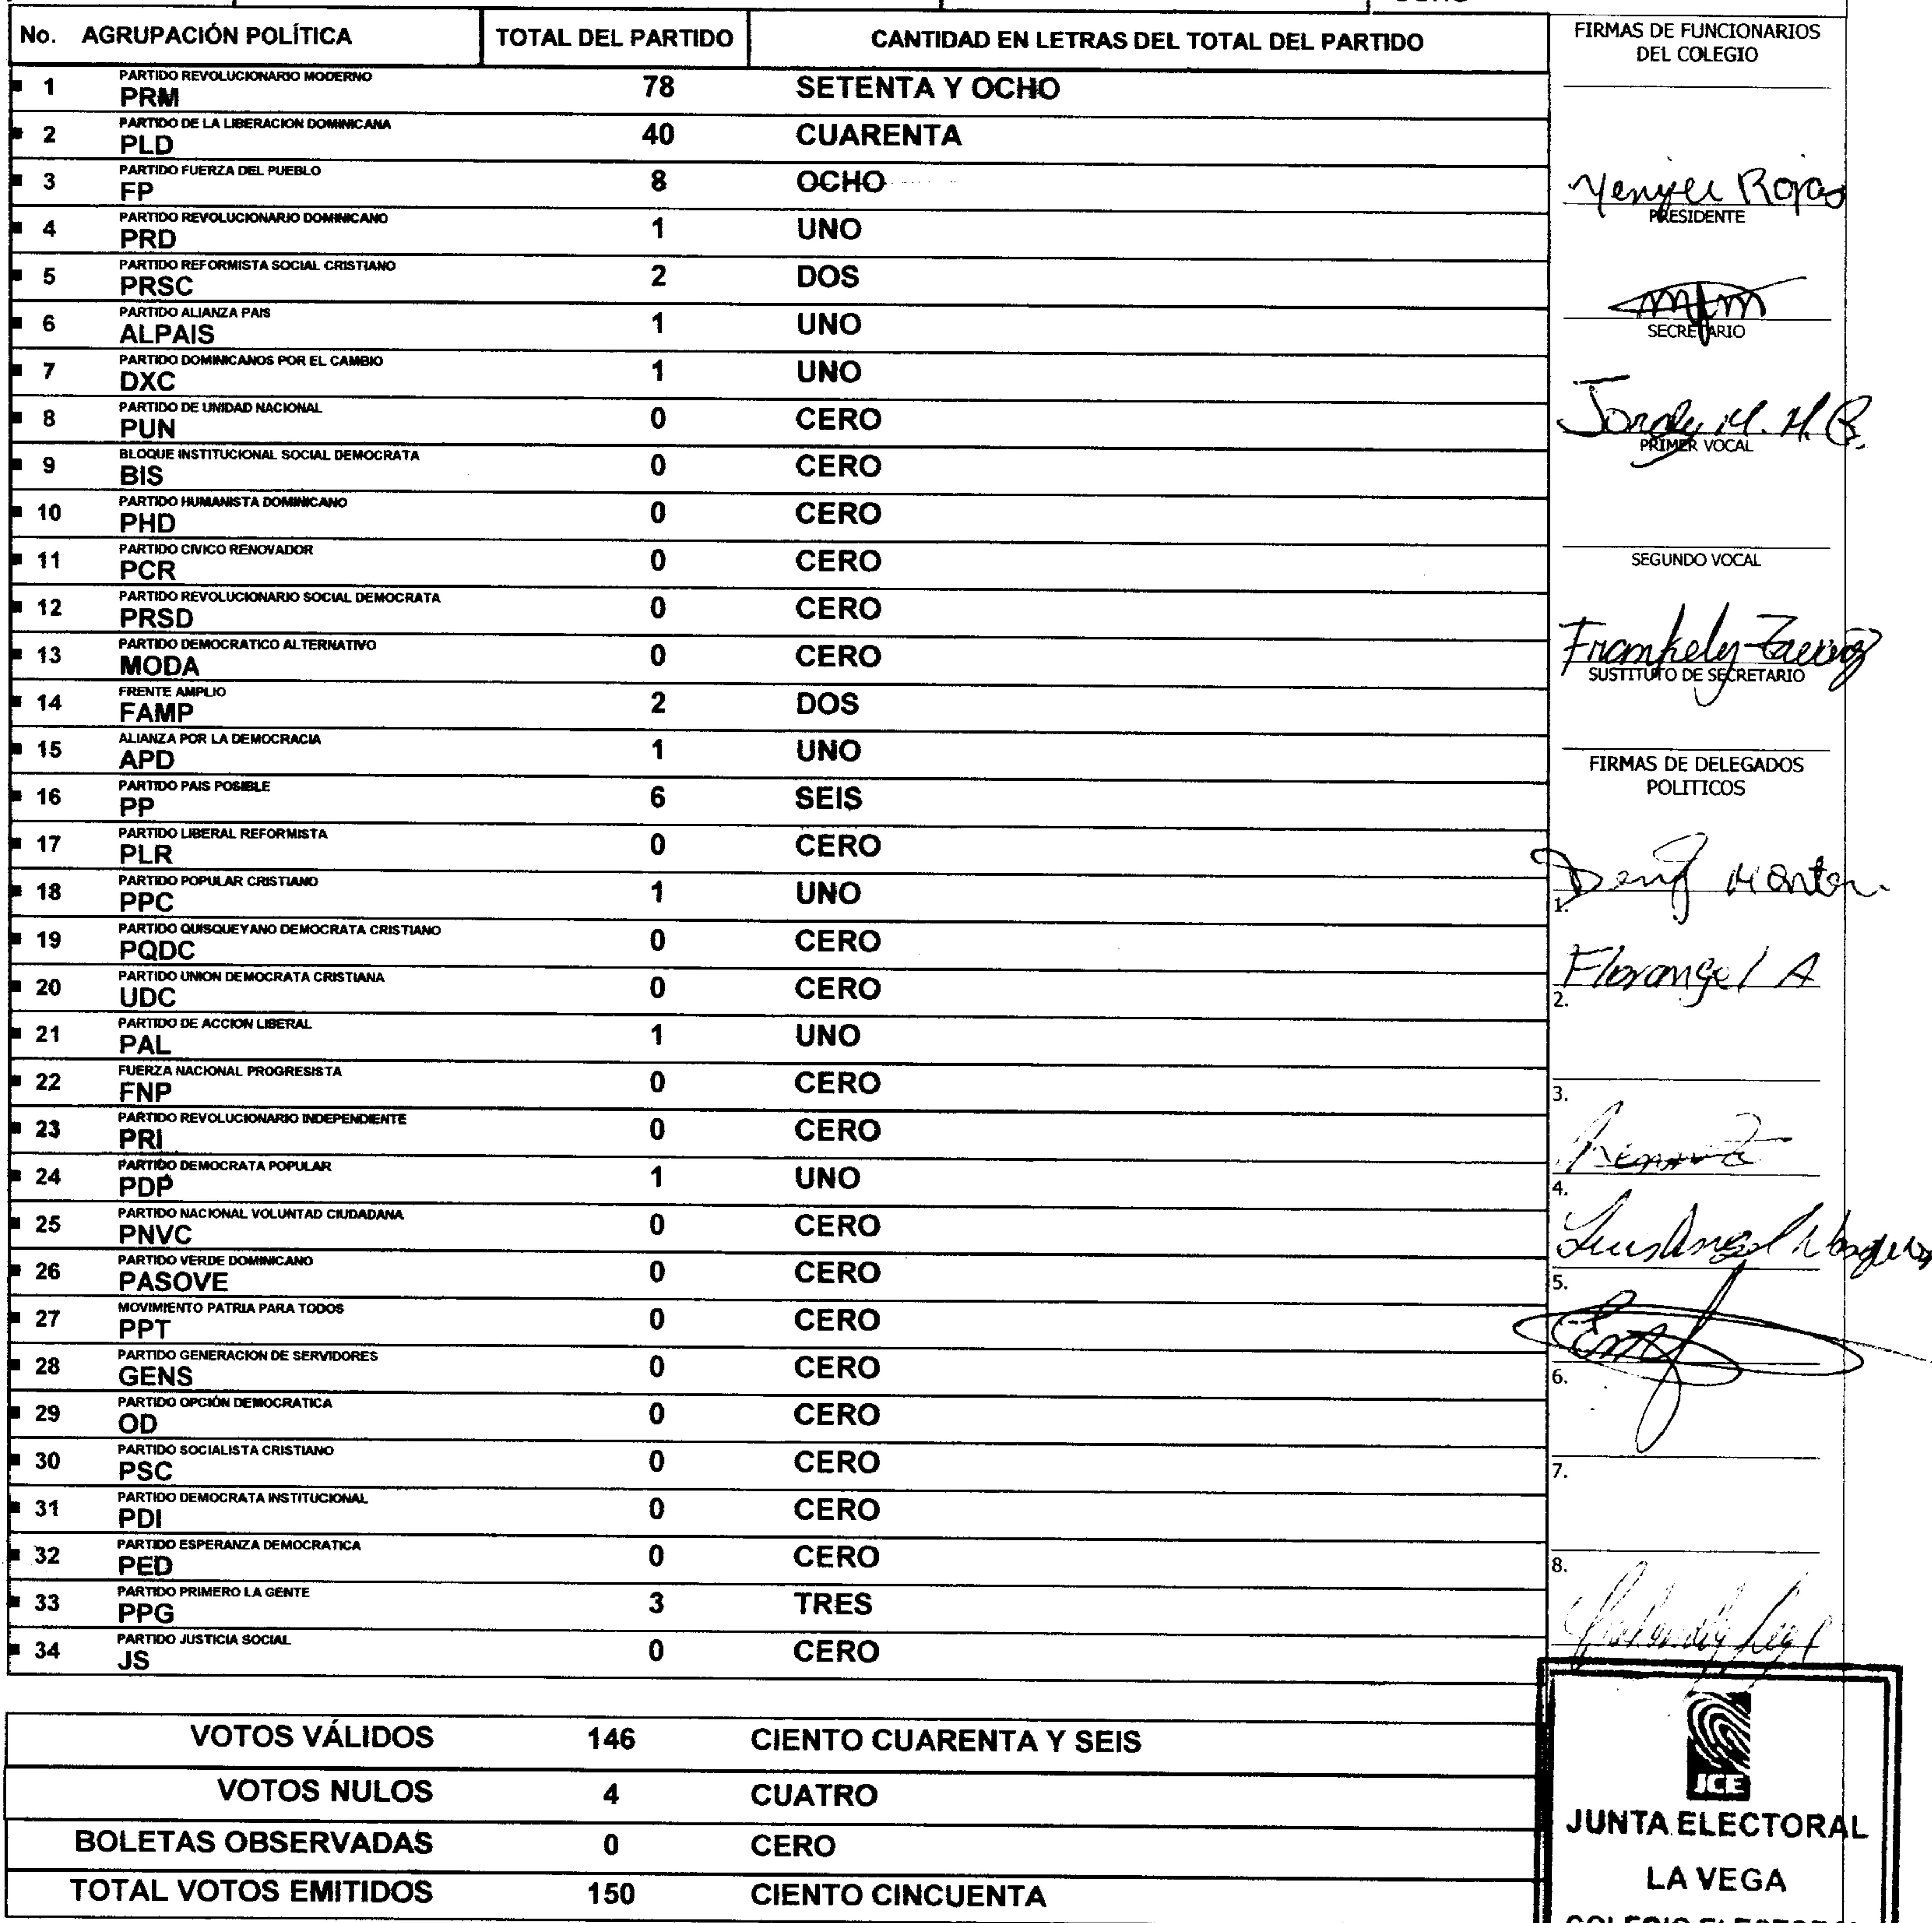 No. AGRUPACIÓN POLÍTICA TOTAL DEL PARTIDO CANTIDAD EN LETRAS DEL TOTAL DEL PARTIDO
PARTIDO REVOLUCIONARIO MODERNO
1 PRM 78 SETENTA Y OCHO
PARTIDO DE LA LIBERACION DOMINICANA
2 PLD 40 CUARENTA
PARTIDO FUERZA DEL PUEBLO
3 FP 8 OCHO
PARTIDO REVOLUCIONARIO DOMINICANO
4 PRD 1 UNO
PARTIDO REFORMISTA SOCIAL CRISTIANO
5 PRSC 2 DOS
PARTIDO ALIANZA PAIS
6 ALPAIS 1 UNO
PARTIDO DOMINICANOS POR EL CAMBIO
7 DXC 1 UNO
PARTIDO DE UNIDAD NACIONAL
8 PUN 0 CERO
BLOQUE INSTITUCIONAL SOCIAL DEMOCRATA
9 BIS 0 CERO
PARTIDO HUMANISTA DOMINICANO
10 PHD 0 CERO
PARTIDO CIVICO RENOVADOR
11 PCR 0 CERO
PARTIDO REVOLUCIONARIO SOCIAL DEMOCRATA
12 PRSD 0 CERO
PARTIDO DEMOCRATICO ALTERNATIVO
13 MODA 0 CERO
FRENTE AMPLIO
14 FAMP 2 DOS
ALIANZA POR LA DEMOCRACIA
15 APD 1 UNO
PARTIDO PAIS POSIBLE
16 PP 6 SEIS
PARTIDO LIBERAL REFORMISTA
17 PLR 0 CERO
PARTIDO POPULAR CRISTIANO
18 PPC 1 UNO
PARTIDO QUISQUEYANO DEMOCRATA CRISTIANO
19 PQDC 0 CERO
PARTIDO UNION DEMOCRATA CRISTIANA
20 UDC 0 CERO
PARTIDO DE ACCION LIBERAL
21 PAL 1 UNO
FUERZA NACIONAL PROGRESISTA
22 FNP 0 CERO
PARTIDO REVOLUCIONARIO INDEPENDIENTE
23 PRI 0 CERO
PARTIDO DEMOCRATA POPULAR
24 PDP 1 UNO
PARTIDO NACIONAL VOLUNTAD CIUDADANA
25 PNVC 0 CERO
PARTIDO VERDE DOMINICANO
26 PASOVE 0 CERO
MOVIMIENTO PATRIA PARA TODOS
27 PPT 0 CERO
PARTIDO GENERACION DE SERVIDORES
28 GENS 0 CERO
PARTIDO OPCIÓN DEMOCRATICA
29 OD 0 CERO
PARTIDO SOCIALISTA CRISTIANO
30 PSC 0 CERO
PARTIDO DEMOCRATA INSTITUCIONAL
31 PDI 0 CERO
PARTIDO ESPERANZA DEMOCRATICA
32 PED 0 CERO
PARTIDO PRIMERO LA GENTE
33 PPG 3 TRES
PARTIDO JUSTICIA SOCIAL
34 JS 0 CERO
VOTOS VÁLIDOS 146 CIENTO CUARENTA Y SEIS
VOTOS NULOS 4 CUATRO
BOLETAS OBSERVADAS 0 CERO
TOTAL VOTOS EMITIDOS 150 CIENTO CINCUENTA
FIRMAS DE FUNCIONARIOS
DEL COLEGIO
Rojas
PRESIDENTE
SECRETARIO
PRIMER VOCAL
SEGUNDO VOCAL
SUSTITUTO DE SECRETARIO
FIRMAS DE DELEGADOS
POLITICOS
1.
Florangel A
2.
3.
4.
5.
6.
7.
8.
JCE
JUNTA ELECTORAL
LA VEGA